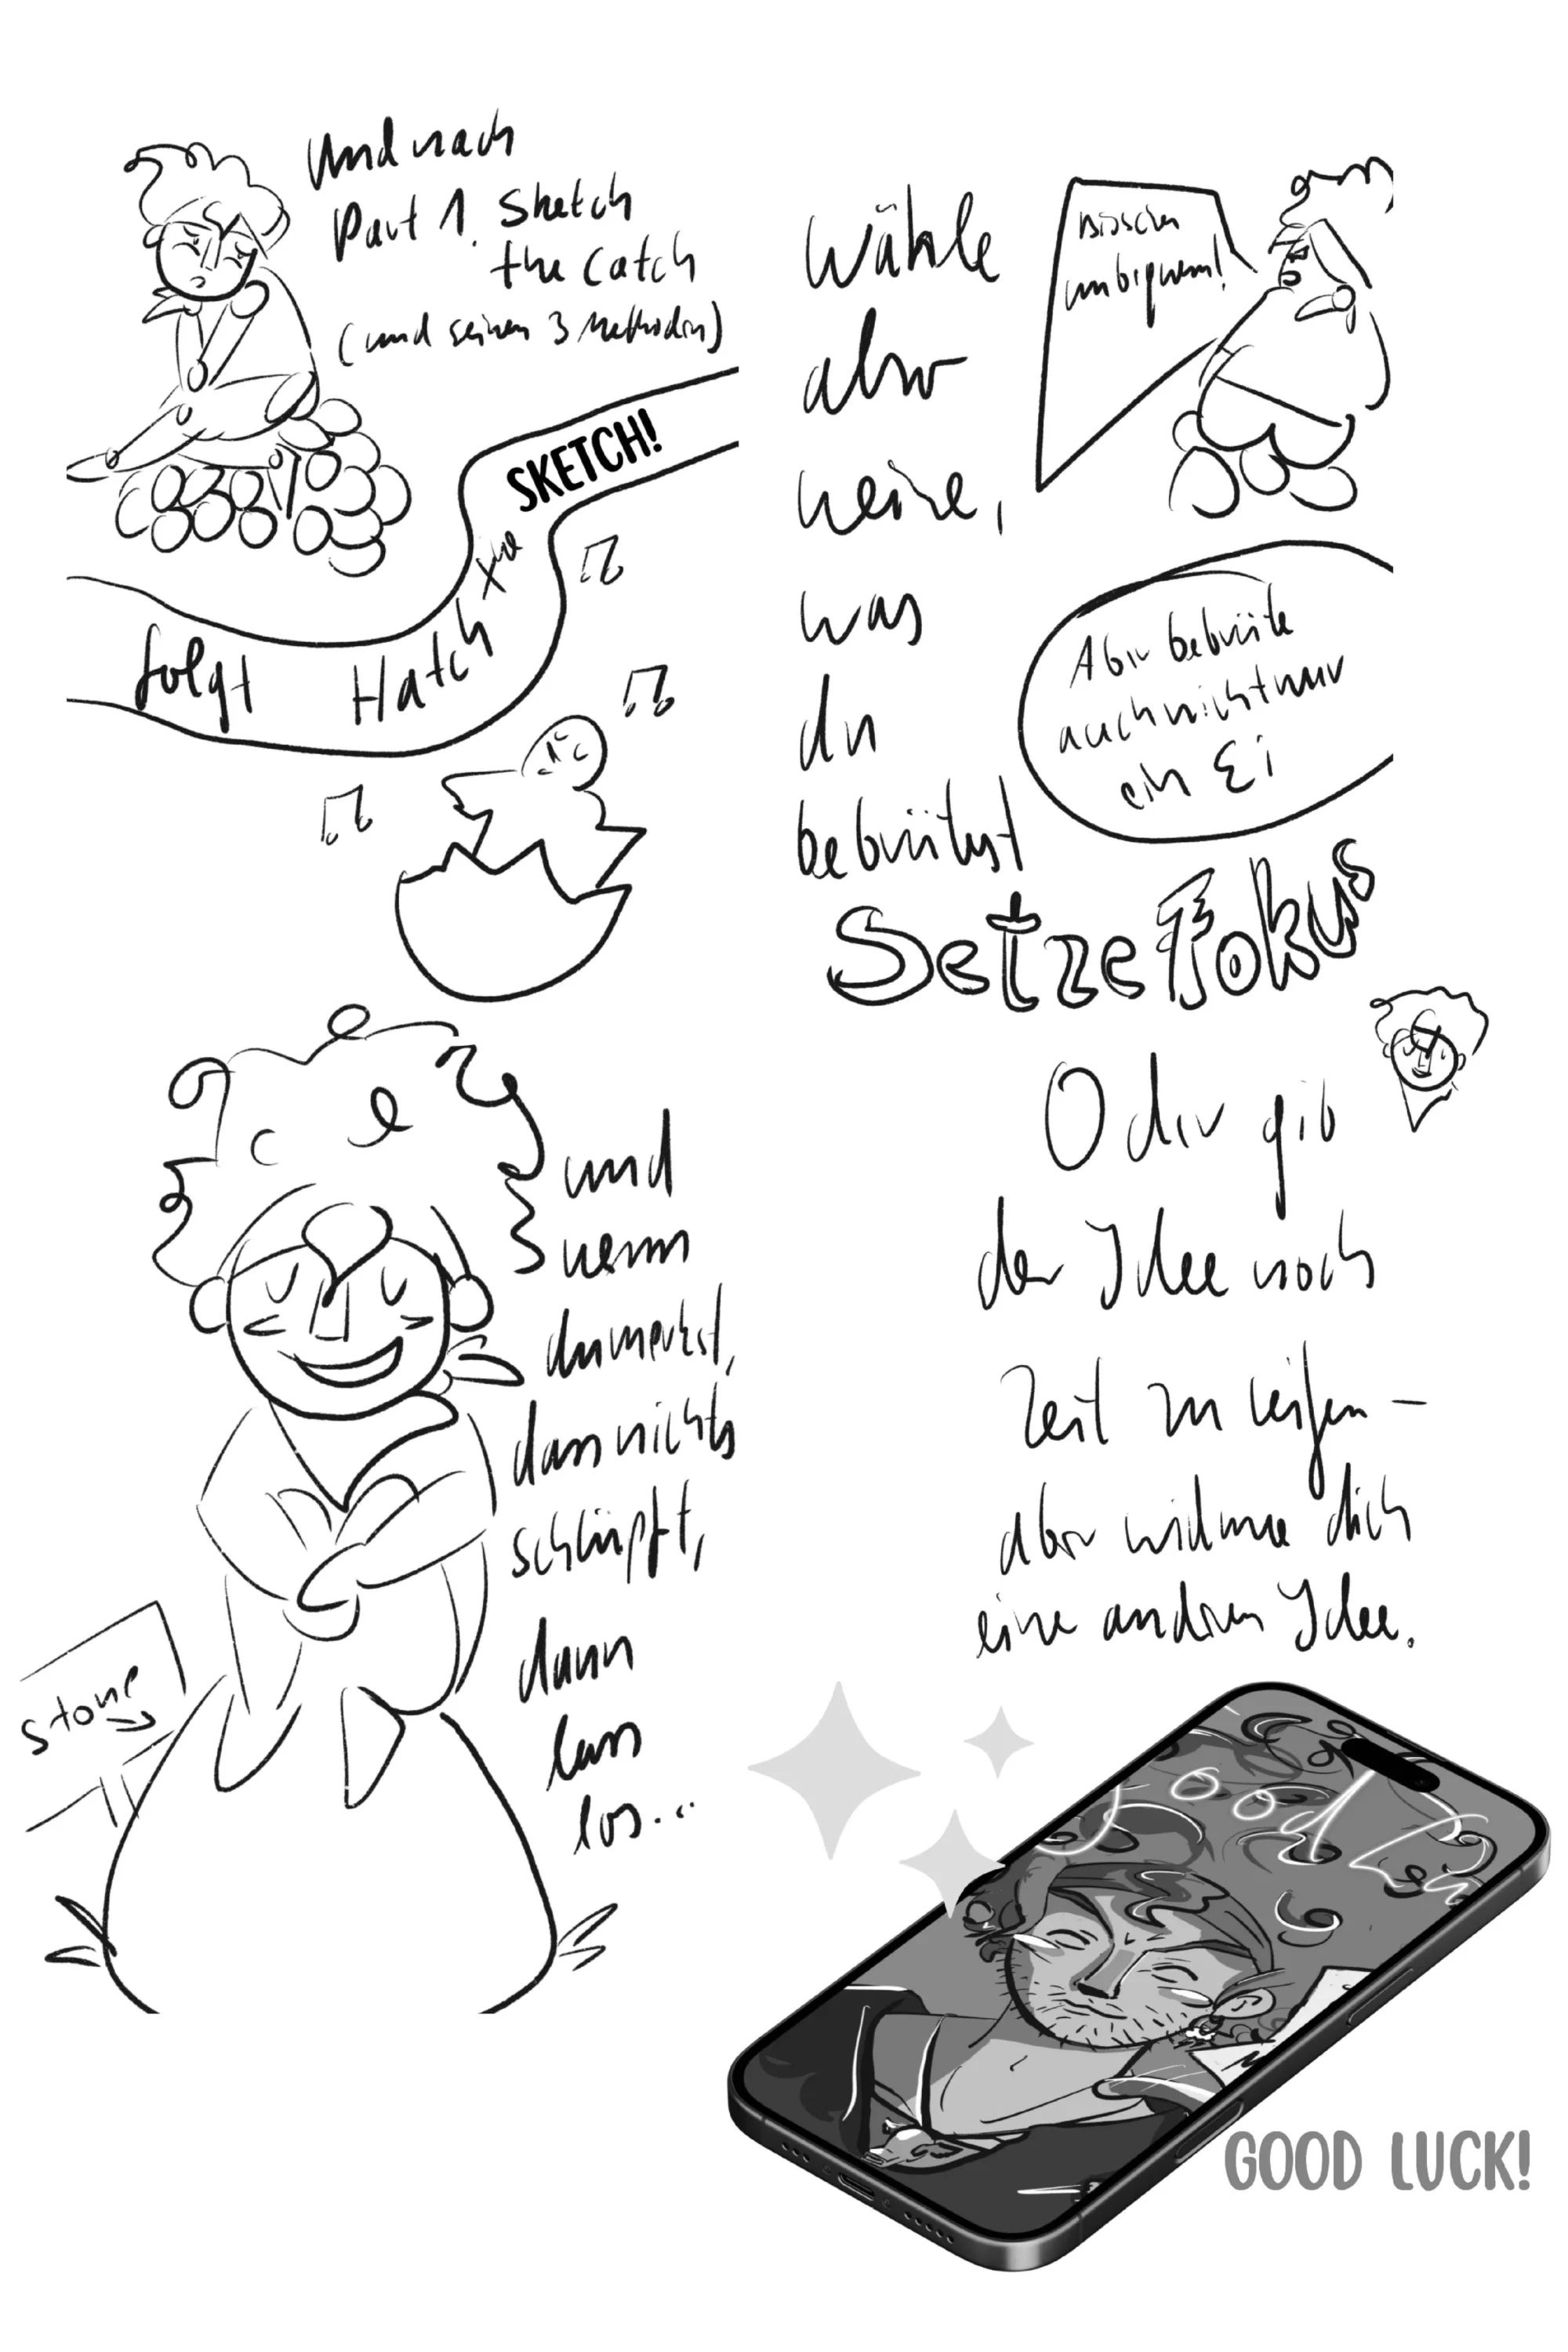 und nach
Part 1. Sketch
the Catch
(und seinen 3 Methoden)
SKETCH!
folgt Hatch
Wähle
also
weise,
was
du
bebrütest
bisschen
unbequem!
Aber bebrüte
auch nicht nur
ein Ei
Setze Fokus
und
wenn
du merkst,
dass nichts
schlüpft,
dann
lass
los...
Stone
Oder gib
der Idee noch
Zeit zu reifen –
aber widme dich
eine andren Idee.
Good
GOOD LUCK!